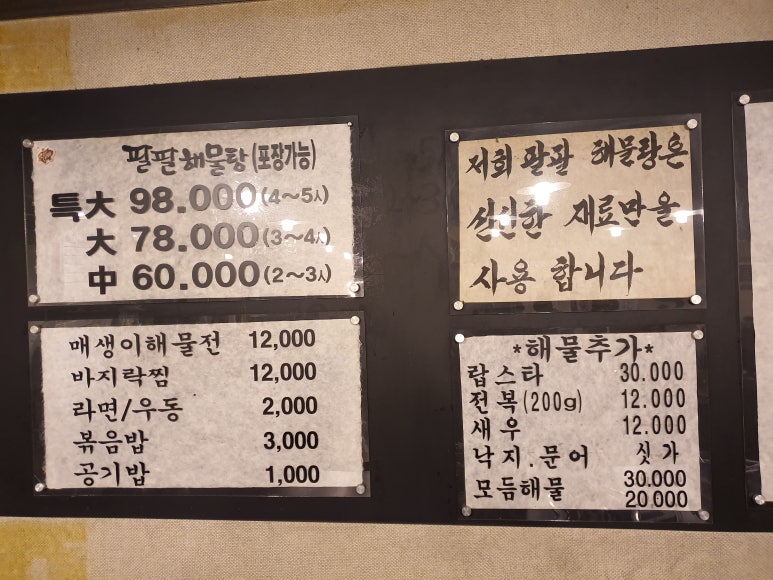 팔팔해물탕 (포장가능)
특大 98.000 (4~5人)
大 78.000 (3~4人)
中 60.000 (2~3人)
저희 팔팔 해물탕은
신신한 재료만을
사용 합니다
매생이해물전 12,000
바지락찜 12,000
라면/우동 2,000
볶음밥 3,000
공기밥 1,000
*해물추가*
랍스타 30.000
전복(200g) 12.000
새우 12.000
낙지.문어 싯가
모듬해물 30.000
20.000